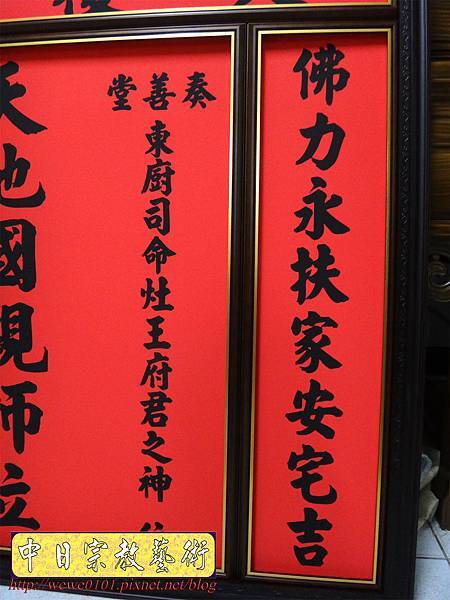 佛力永扶家安宅吉
奏善堂
東廚司命灶王府君之神
天地國親師位
中日宗教藝術
http://wewe0101.pixnet.net/blog